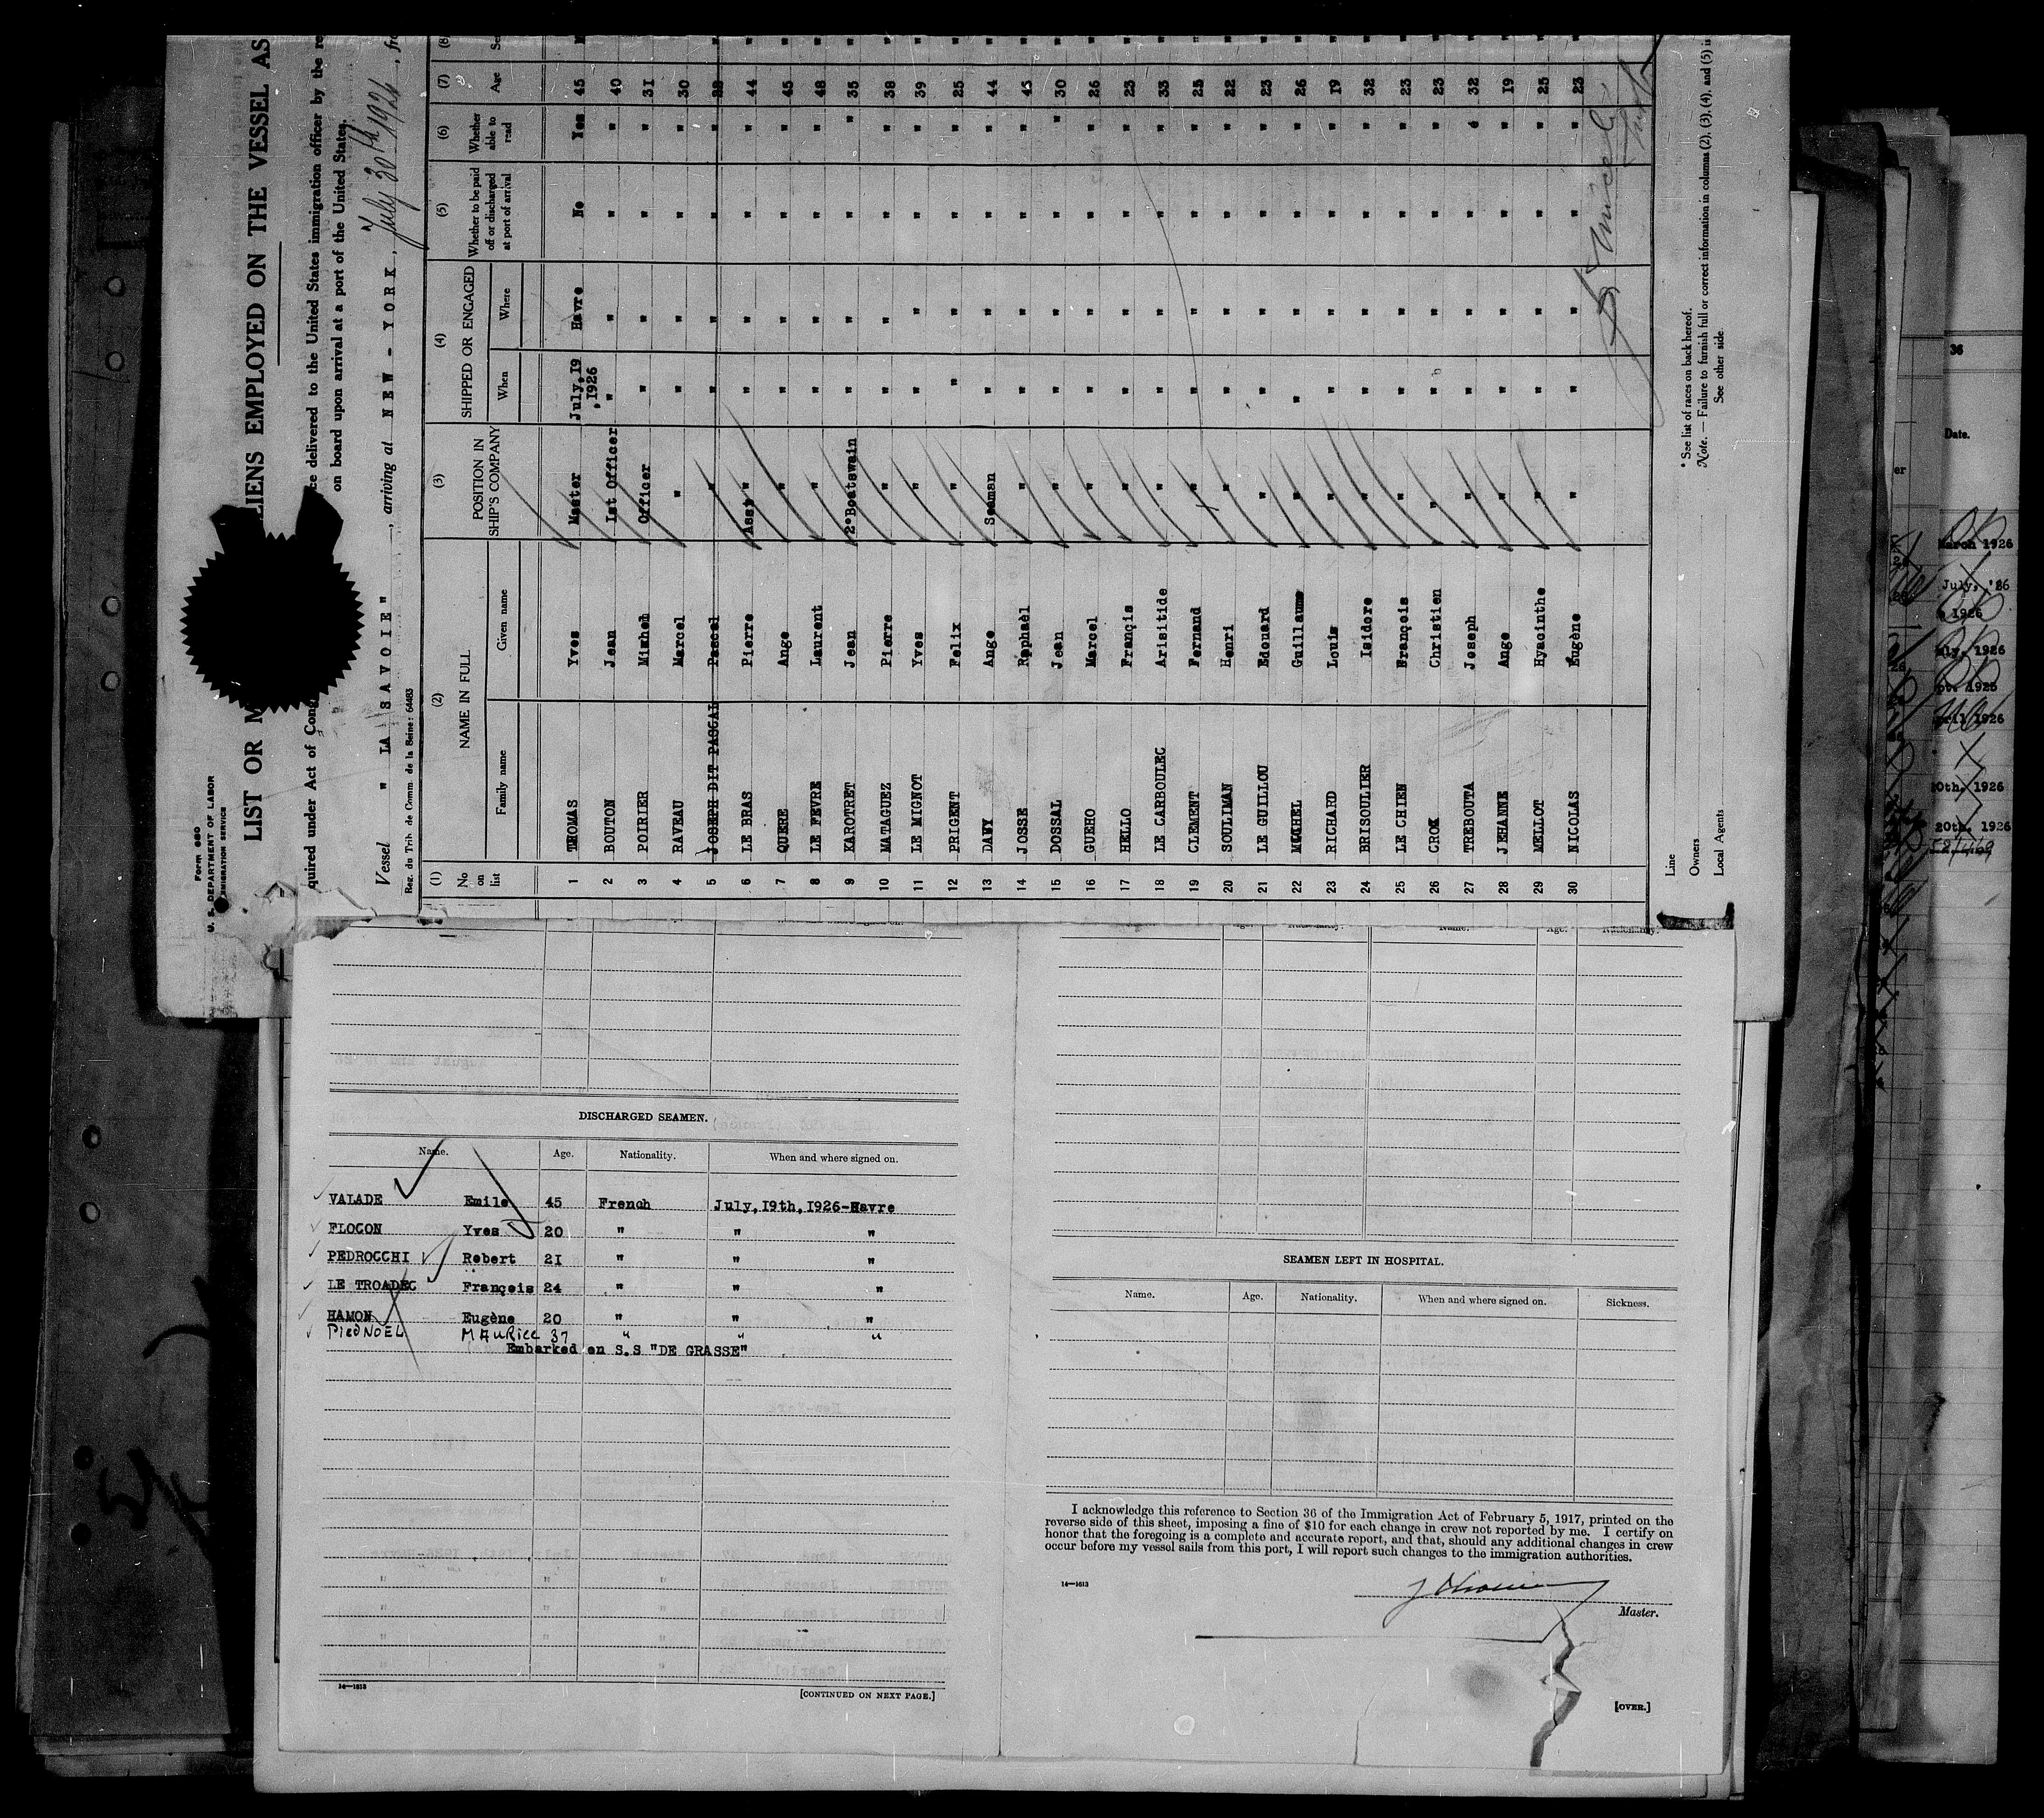 Form 680
U. S. DEPARTMENT OF LABOR
IMMIGRATION SERVICE
LIST OR LIENS EMPLOYED ON THE VESSEL AS
quired under Act of Cong ce delivered to the United States immigration officer by the re
on board upon arrival at a port of the United States.
Vessel " LA SAVOIE" , arriving at NEW - YORK , July 30th 1926 , fro
Reg. du Trib. de Comm. de la Seine: 64483
(1) (2) (3) (4) (5) (6) (7) (8)
No on list NAME IN FULL POSITION IN SHIP'S COMPANY SHIPPED OR ENGAGED Whether to be paid off or discharged at port of arrival Whether able to read Age Se
Family name Given name When Where
1 THOMAS Yves Master July, 19, 1926 Havre No Yes 45 M
2 BOUTON Jean 1st Officer " " " " 40
3 POIRIER Officer " " " " 31
4 RAVEAU Marcel " " " " " 30
5 JOSEPH DIT PASCAL Pascal " " " " " 28 "
6 LE BRAS Pierre Asst " " " " " 44 "
7 QUERE Ange " " " " " 45 "
8 LE FEVRE Laurent " " " " " 48 "
9 KAROTRET Jean 2°Boatswain " " " " 35 "
10 MATAGUEZ Pierre " " " " " 38 "
11 LE MIGNOT Yves " " " " " 39 "
12 PRIGENT Felix " " " " " 25 "
13 DANY Ange Seaman " " " " 44 "
14 JOSSE Raphaèl " " " " " 45 "
15 DOSSAL Jean " " " " " 30 "
16 GUEHO Marcel " " " " " 26 "
17 HELLO Françis " " " " " 23 "
18 LE CARBOULEC Arisitide " " " " " 33 "
19 CLEMENT Fernand " " " " " 25 "
20 SOULIMAN Henri " " " " " 22 "
21 LE GUILLOU Edouard " " " " " 23 "
22 MICHEL Guillaume " " " " " 26 "
23 RICHARD Louis " " " " " 19 "
24 BRISOULIER Isidore " " " " " 32 "
25 LE CHIEN François " " " " " 23 "
26 CROM Christien " " " " " 23 "
27 TREBOUTA Joseph " " " " " 32 "
28 JEHANNE Ange " " " " " 19 "
29 MELLOT Hyacinthe " " " " " 25 "
30 NICOLAS Eugène " " " " " 23 "
Line
Owners
Local Agents
* See list of races on back hereof.
Note. — Failure to furnish full or correct information in columns (2), (3), (4), and (5) is
See other side
Name. Age. Nationality.
DISCHARGED SEAMEN.
Name. Age. Nationality. When and where signed on.
VALADE Emile 45 French July, 19th, 1926-Havre
FLOCON Yves 20 " " "
PEDROCCHI Robert 21 " " "
LE TROADEC François 24 " " "
HAMON Eugène 20 " " "
PiedNOEL MAuRicE 37 " " "
Embarked on S.S "DE GRASSE"
14—1613
[CONTINUED ON NEXT PAGE.]
SEAMEN LEFT IN HOSPITAL.
Name. Age. Nationality. When and where signed on. Sickness.
I acknowledge this reference to Section 36 of the Immigration Act of February 5, 1917, printed on the
reverse side of this sheet, imposing a fine of $10 for each change in crew not reported by me. I certify on
honor that the foregoing is a complete and accurate report, and that, should any additional changes in crew
occur before my vessel sails from this port, I will report such changes to the immigration authorities.
14—1613
Master.
[OVER.]
36
Date.
er
March 1926
July, '26
1926
uly, 1926
pt. 1925
pril 1926
20th, 1926
20th, 1926